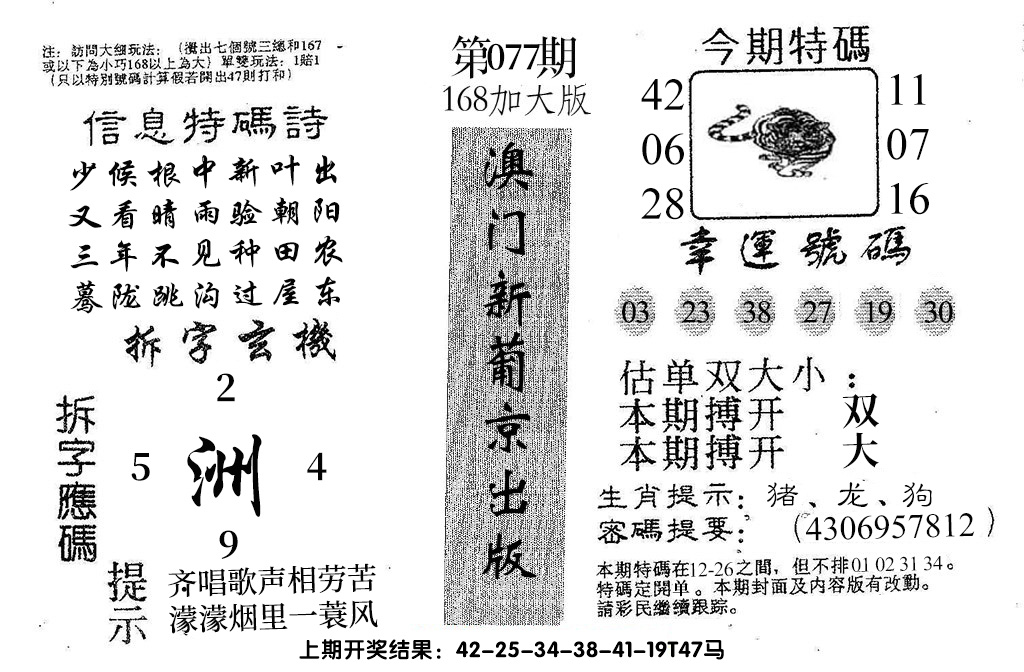 注：訪問大细玩法：(攪出七個號三總和167
或以下為小巧168以上為大）單雙玩法：1賠1
(只以特別號碼計算假若開出47則打和)
信息特碼詩
少候根中新叶出
又看晴雨验朝阳
三年不见种田农
蓦陇跳沟过屋东
拆字玄機
拆字應碼
2
5 洲 4
9
提示
齐唱歌声相劳苦
濛濛烟里一蓑风
第077期
168加大版
澳门新葡京出版
今期特碼
42 11
06 07
28 16
幸運號碼
03 23 38 27 19 30
估单双大小：
本期搏开 双
本期搏开 大
生肖提示：猪、龙、狗
密碼提要：（4306957812）
本期特碼在12-26之間，但不排01 02 31 34。
特碼定開单。本期封面及内容版有改動。
請彩民繼續跟踪。
上期开奖结果：42-25-34-38-41-19T47马